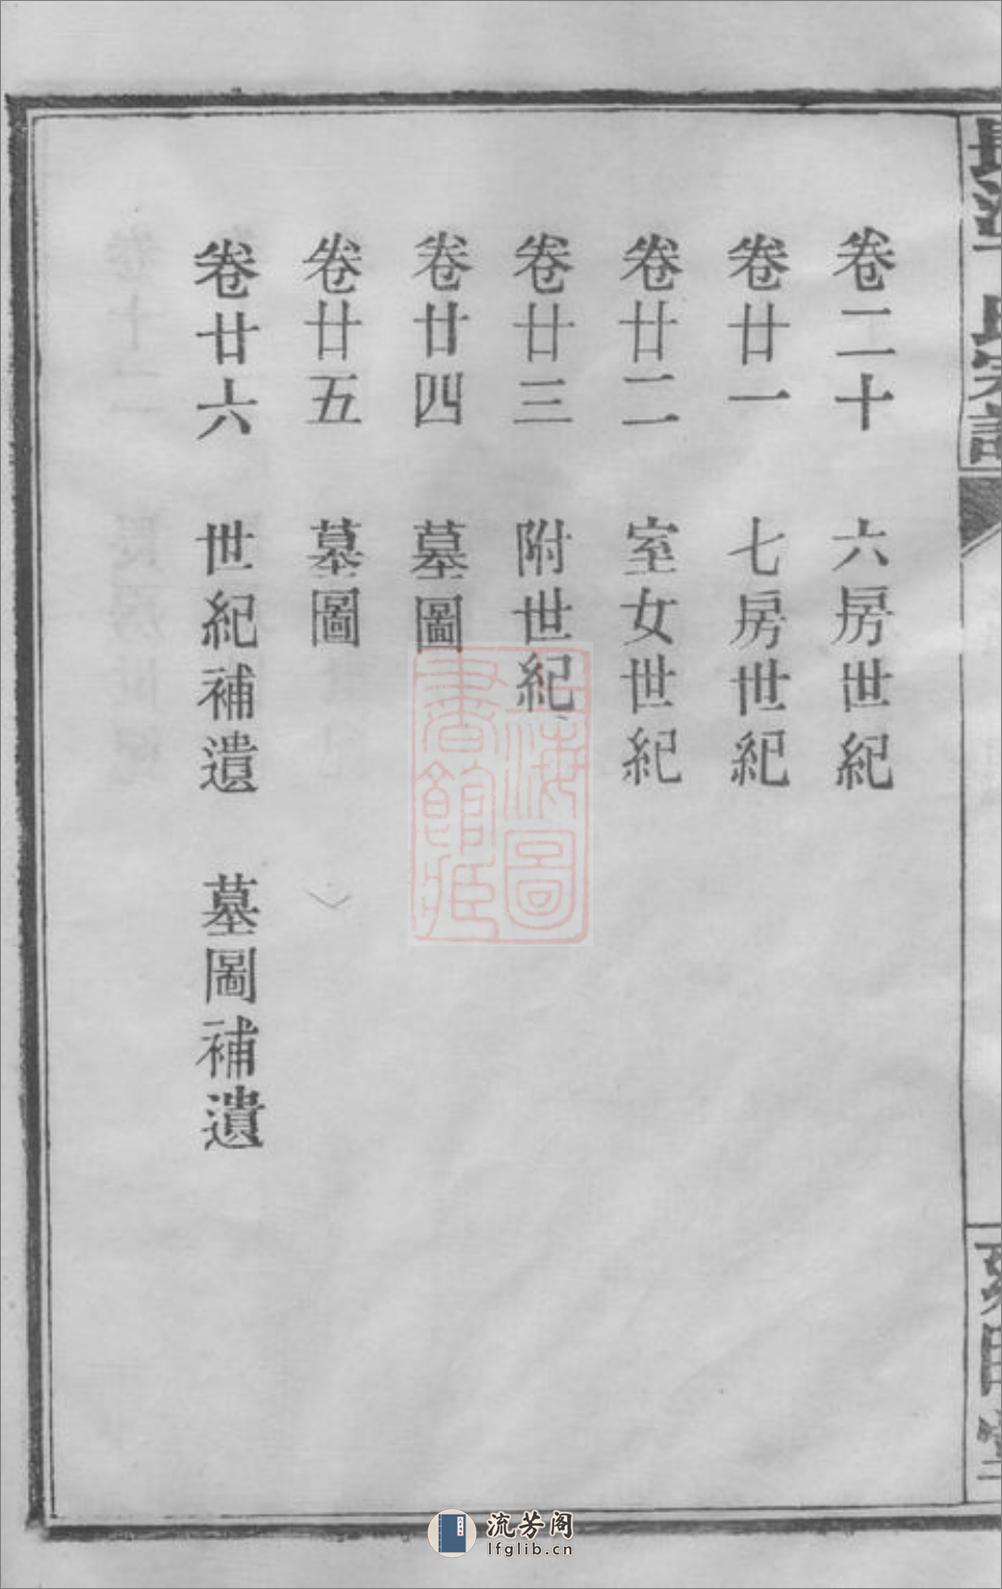 卷二十 六房世紀
卷廿一 七房世紀
卷廿二 室女世紀
卷廿三 附世紀
卷廿四 墓圖
卷廿五 墓圖
卷廿六 世紀補遺 墓圖補遺
上海圖書館藏
流芳阁
lfglib.cn